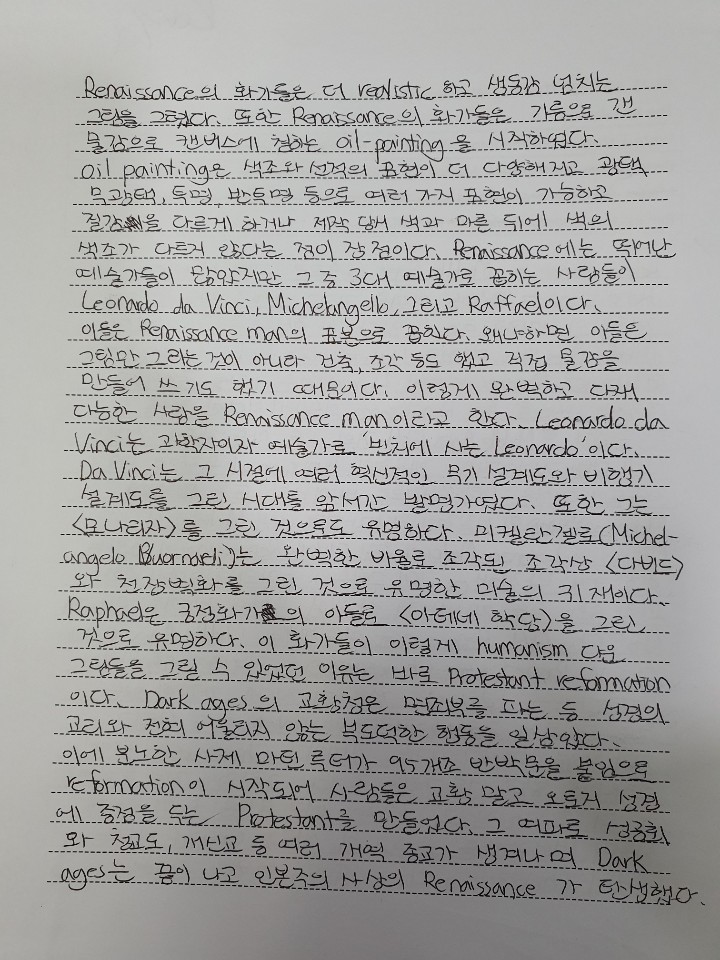 Renaissance의 화가들은 더 realistic 하고 생동감 넘치는
그림을 그렸다. 또한 Renaissance의 화가들은 기름으로 갠
물감으로 캔버스에 칠하는 oil-painting을 시작하였다.
oil painting은 색조와 선적의 표현이 더 다양해지고 광택
무광택, 투명, 반투명 등으로 여러 가지 표현이 가능하고
질감을 다르게 하거나 제작 당시 색과 마른 뒤에 색의
색조가 다르지 않다는 점이 장점이다. Renaissance에는 뛰어난
예술가들이 많았지만 그 중 3대 예술가로 꼽히는 사람들이
Leonardo da Vinci, Michelangello, 그리고 Raffael이다.
이들은 Renaissance man의 표본으로 꼽힌다. 왜냐하면 이들은
그림만 그리는 것이 아니라 건축, 조각 등도 했고 직접 물감을
만들어 쓰기도 했기 때문이다. 이렇게 완벽하고 다재
다능한 사람을 Renaissance man이라고 한다. Leonardo da
Vinci는 과학자이자 예술가로 '빈치에 사는 Leonardo'이다.
Da Vinci는 그 시절에 여러 혁신적인 무기 설계도와 비행기
설계도를 그린 시대를 앞서간 발명가였다. 또한 그는
<모나리자>를 그린 것으로도 유명하다. 미켈란젤로(Michel-
angelo Buornaeli)는 완벽한 비율로 조각된 조각상 <다비드>
와 천장벽화를 그린 것으로 유명한 미술의 귀재이다.
Raphael은 궁정화가의 아들로 <아테네 학당>을 그린
것으로 유명하다. 이 화가들이 이렇게 humanism 다운
그림들을 그릴 수 있었던 이유는 바로 Protestant reformation
이다. Dark ages의 교황청은 면죄부를 파는 등 성경의
교리와 전혀 어울리지 않는 부도덕한 행동을 일삼았다.
이에 분노한 사제 마틴 루터가 95개조 반박문을 붙임으로
reformation이 시작되어 사람들은 교황 말고 오로지 성경
에 중점을 두는 Protestant를 만들었다. 그 여파로 성공회
와 청교도, 개신교 등 여러 개혁 종교가 생겨나며 Dark
ages는 끝이 나고 인본주의 사상의 Renaissance 가 탄생했다.